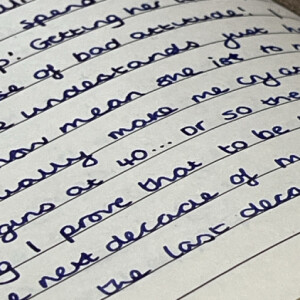 spend
p! Getting her
se of bad attitude! I
e understands just h
how mean she is to
ually make me cry at
gins at 40... or so the
g I prove that to be
e next decade of m
the last deca